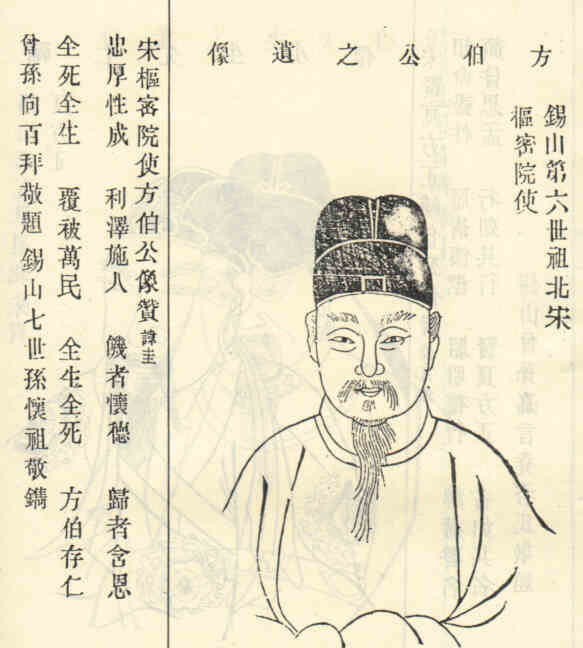 方伯公之遺像
錫山第六世祖北宋
樞密院使
宋樞密院使方伯公像贊 諱圭
忠厚性成 利澤施人 饑者懷德 歸者含恩
全死全生 覆被萬民 全生全死 方伯存仁
曾孫向百拜敬題 錫山七世孫懷祖敬鐫